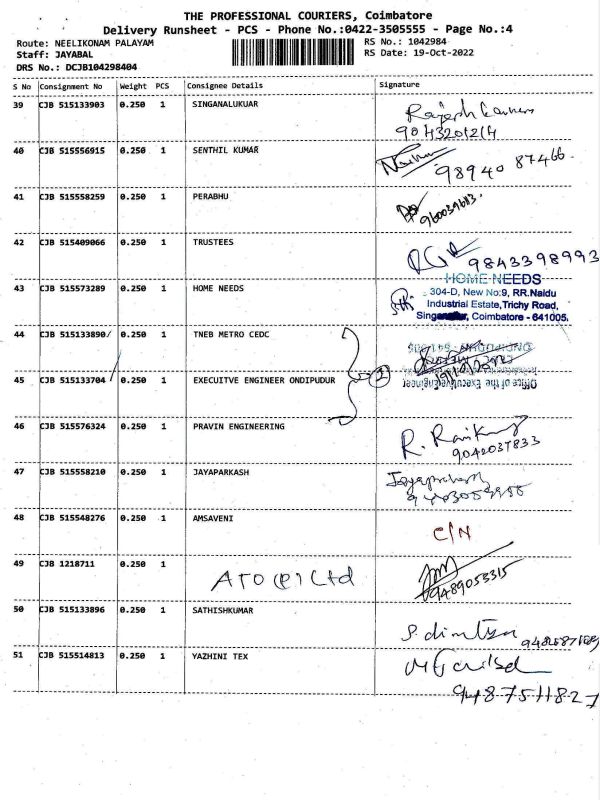 THE PROFESSIONAL COURIERS, Coimbatore
Delivery Runsheet - PCS - Phone No.:0422-3505555 - Page No.:4
Route: NEELIKONAM PALAYAM RS No.: 1042984
Staff: JAYABAL RS Date: 19-Oct-2022
DRS No.: DCJB104298404
S No Consignment No Weight PCS Consignee Details Signature
39 CJB 515133903 0.250 1 SINGANALUKUAR
9043201214
40 CJB 515556915 0.250 1 SENTHIL KUMAR
98940 87466
41 CJB 515558259 0.250 1 PERABHU
960039683
42 CJB 515409066 0.250 1 TRUSTEES
9843398993
43 CJB 515573289 0.250 1 HOME NEEDS
HOME NEEDS
304-D, New No:9, RR.Naidu
Industrial Estate,Trichy Road,
Coimbatore - 641005.
44 CJB 515133890/ 0.250 1 TNEB METRO CEDC
45 CJB 515133704 0.250 1 EXECUITVE ENGINEER ONDIPUDUR
2
Office of the Executive Engineer
46 CJB 515576324 0.250 1 PRAVIN ENGINEERING
9042037833
47 CJB 515558210 0.250 1 JAYAPARKASH
48 CJB 515548276 0.250 1 AMSAVENI
C/N
49 CJB 1218711 0.250 1
ATO (P) Ltd
9489053315
50 CJB 515133896 0.250 1 SATHISHKUMAR
51 CJB 515514813 0.250 1 YAZHINI TEX
9487511827